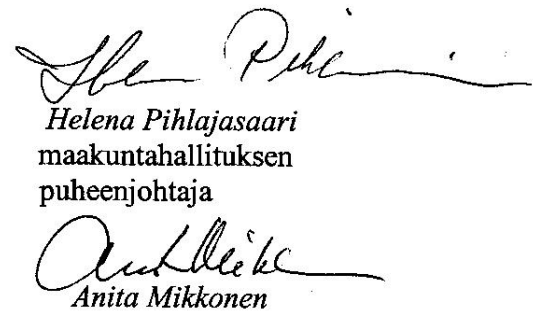 Helena Pihlajasaari
maakuntahallituksen
puheenjohtaja
Anita Mikkonen